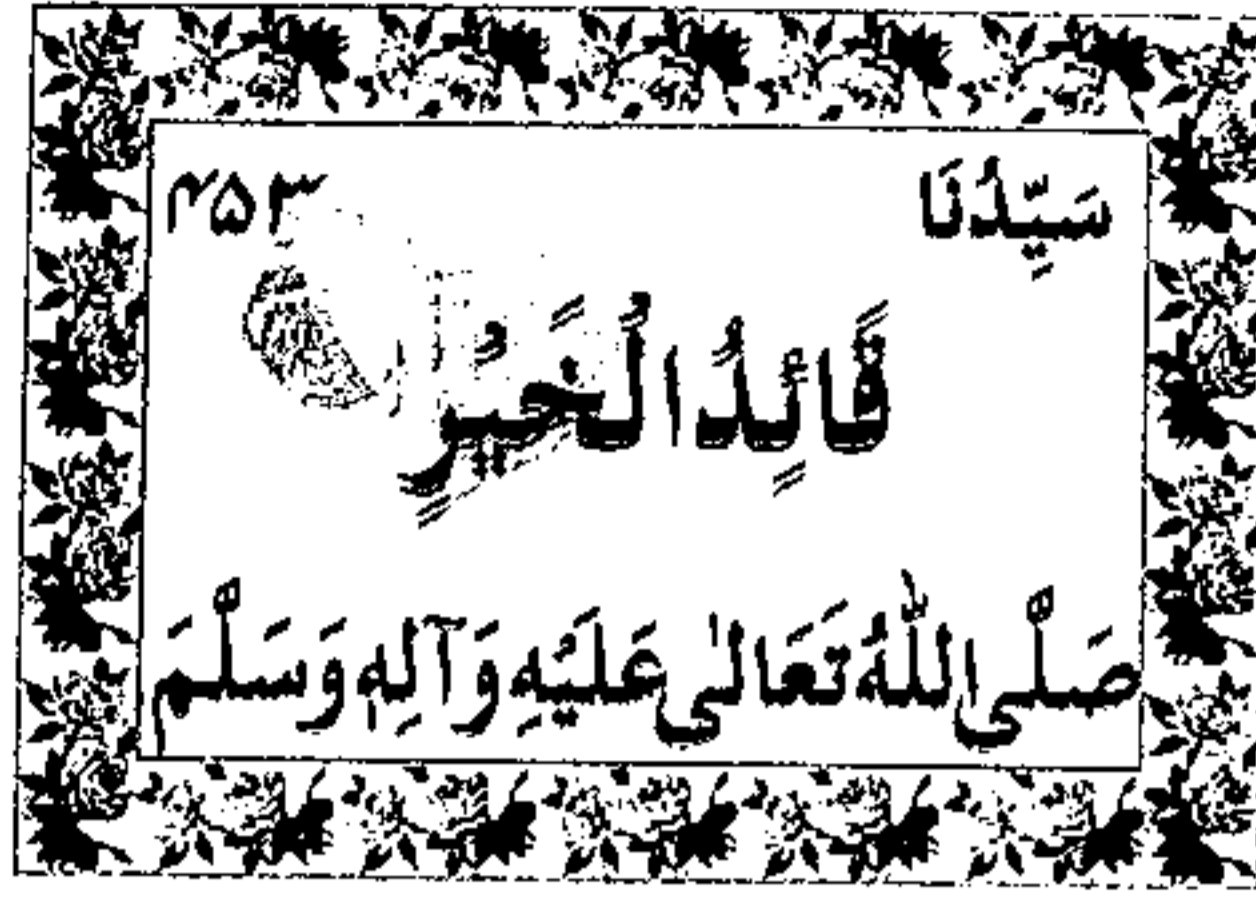 سَيِّدُنَا ۴۵۳
قَائِدُ الْخَيْرِ
صَلَّى اللهُ تَعَالٰى عَلَيْهِ وَآلِهٖ وَسَلَّمَ